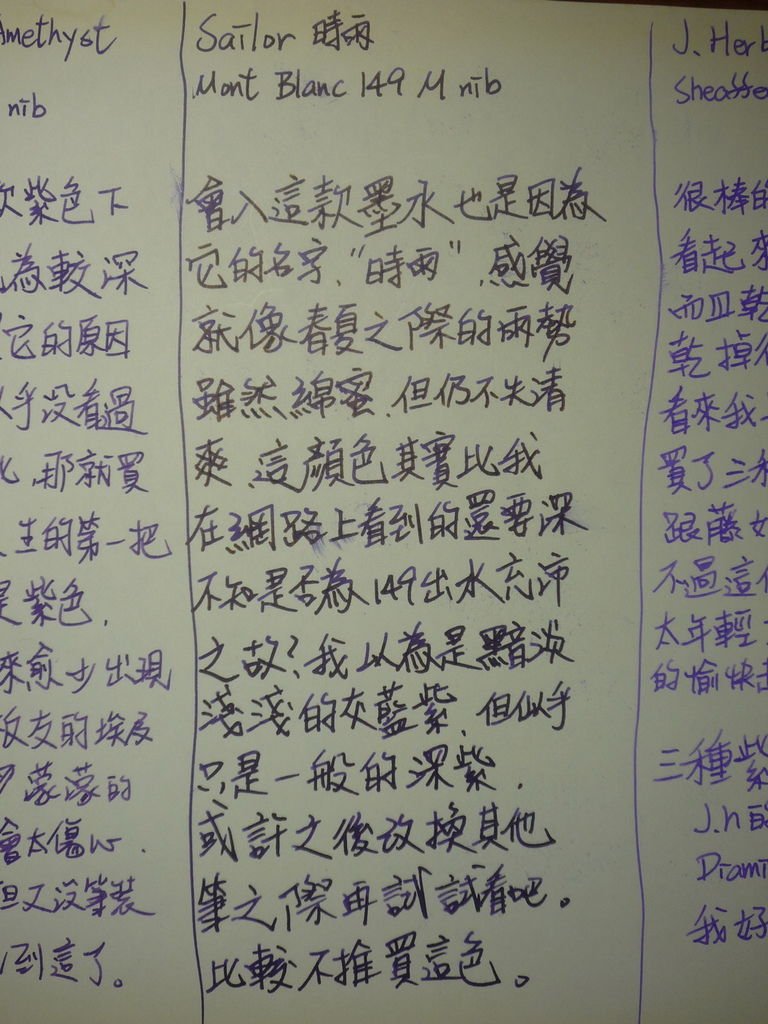 Amethyst
nib
紫色下
為較深
它的原因
乎沒看過
那就買
生的第一把
是紫色.
來愈少出現
故友的埃及
蒙蒙的
會太傷心.
但又沒筆裝
到這了。
Sailor 時雨
Mont Blanc 149 M nib
會入這款墨水也是因為
它的名字,"時雨",感覺
就像春夏之際的雨勢
雖然綿蜜,但仍不失清
爽,這顏色其實比我
在網路上看到的還要深
不知是否為149出水充沛
之故?我以為是黯淡
淺淺的灰藍紫,但似乎
只是一般的深紫.
或許之後改換其他
筆之際再試試看吧。
比較不推買這色。
J. Herb
Sheaffe
很棒的
看起來
而且乾
乾掉後
看來我
買了三種
跟藤
不過這
太年輕
的愉快
三種紫
J.h的
Diami
我好